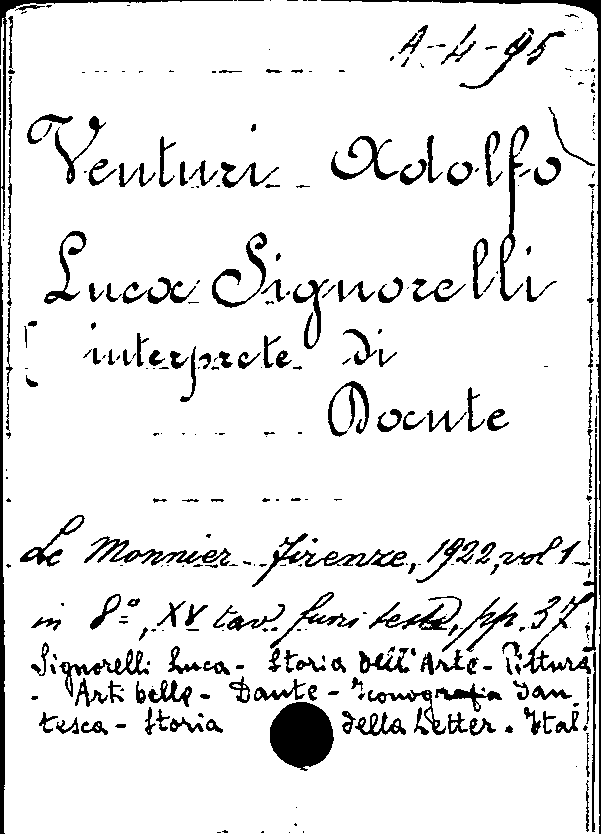 A-4-95
Venturi Adolfo
Luca Signorelli
interprete di
Dante
Le Monnier Firenze, 1922, vol 1
in 8º, XV tav. fuori testo, pp. 37
Signorelli Luca - Storia dell'Arte - Pittura
- Arti belle - Dante - Iconografia Dan
tesca - Storia della Letter. Ital.